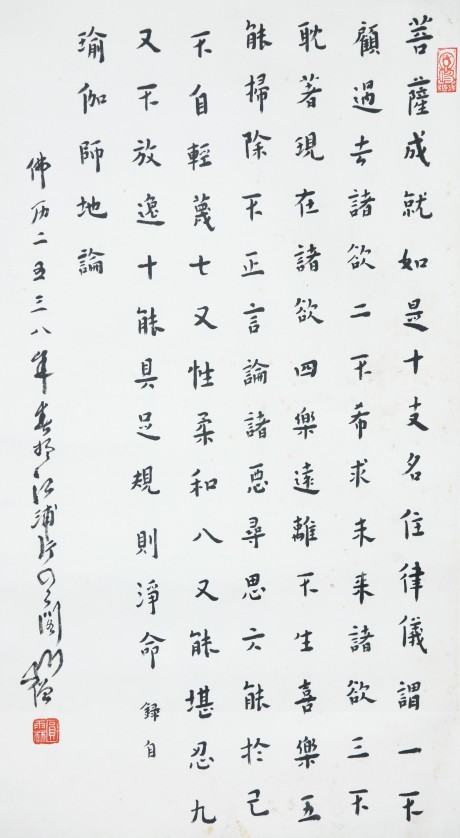 菩薩成就如是十支名住律儀謂一不
顧過去諸欲二不希求未來諸欲三不
耽著現在諸欲四樂遠離不生喜樂五
能掃除不正言論諸惡尋思六能於己
不自輕蔑七又性柔和八又能堪忍九
又不放逸十能具足規則淨命 錄自
瑜伽師地論
佛历二五三八年春於江浦